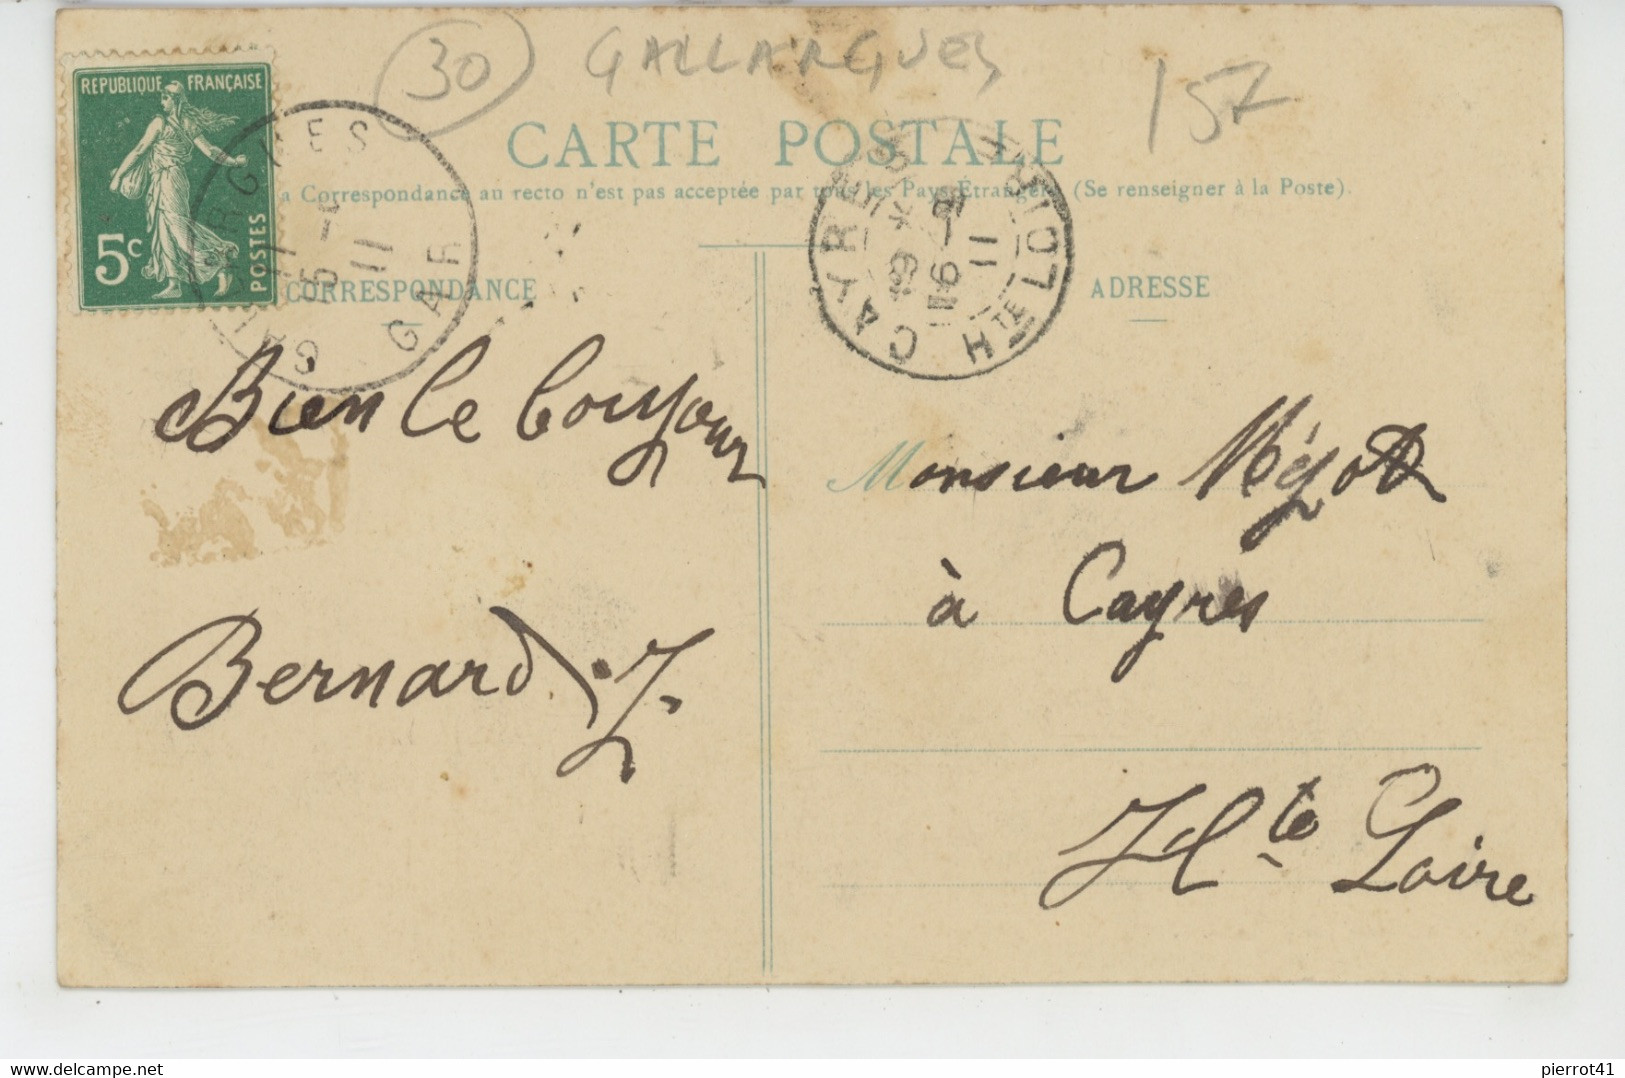 30 GALLARGUES 157
REPUBLIQUE FRANÇAISE
5c POSTES
CARTE POSTALE
a Correspondance au recto n'est pas acceptée par tous les Pays Étrangers (Se renseigner à la Poste).
CORRESPONDANCE
ADRESSE
GALLARGUES GARD
11
CAYRES HTE LOIRE
11
Bien le bonjour
Bernard J.
Monsieur Mégot
à Cayres
Hte Loire
pierrot41